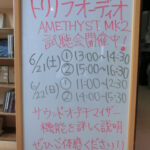 トリノフオーディオ
AMETHYST MK2
試聴会開催中!
6/21(土) ①13:00~14:30
②15:00~16:30
6/22(日) ①11:00~12:30
②14:00~15:30
サウンドオプチマイザー
機能を詳しく説明
ぜひご体感ください!!